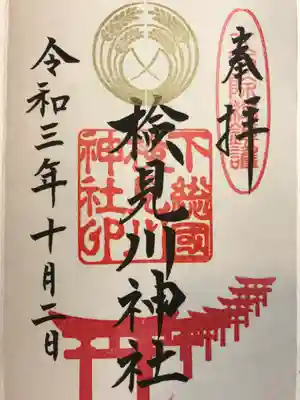 奉拝
検見川神社
下総國
神社印
令和三年十月二日